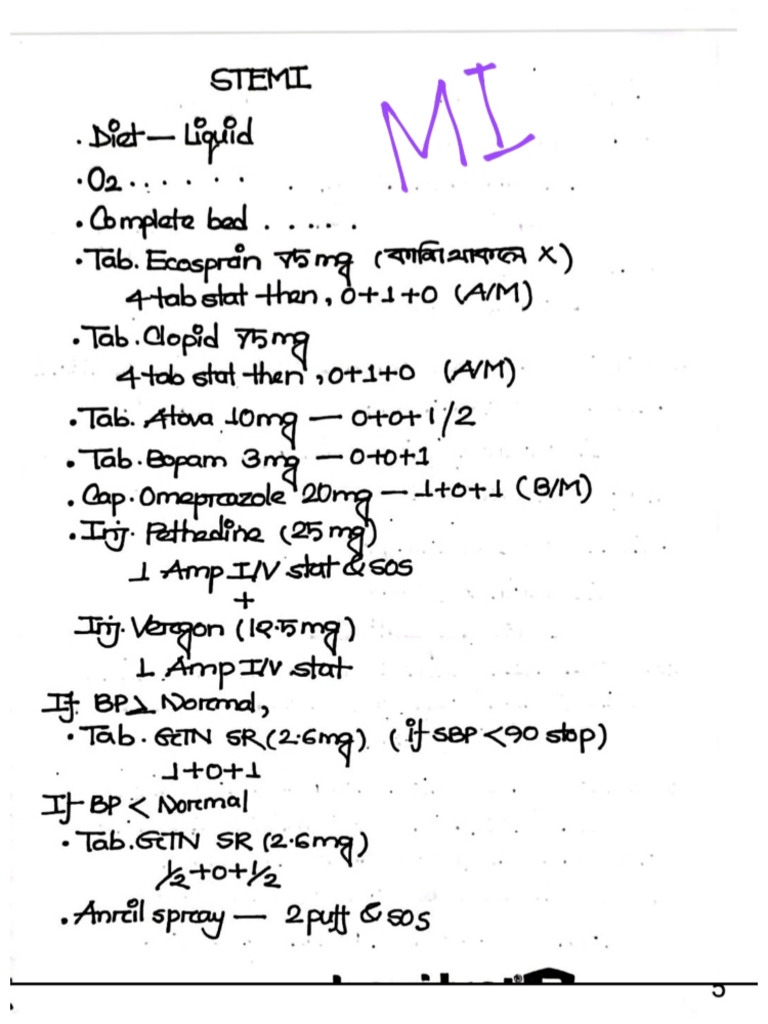 STEMI
MI
• Diet — Liquid
• O2 . . . . . .
• Complete bed . . . . .
• Tab. Ecosprin 75mg (কাশি থাকলে X)
4 tab stat then, 0+1+0 (A/M)
• Tab. Clopid 75mg
4 tab stat then, 0+1+0 (A/M)
• Tab. Atova 10mg — 0+0+1/2
• Tab. Bopam 3mg — 0+0+1
• Cap. Omeprazole 20mg — 1+0+1 (B/M)
• Inj. Pethedine (25mg)
1 Amp I/V stat & SOS
+
Inj. Vergon (12.5mg)
1 Amp I/V stat
If BP ≥ Normal,
• Tab. GTN SR (2.6mg) (if SBP <90 stop)
1+0+1
If BP < Normal
• Tab. GTN SR (2.6mg)
1/2+0+1/2
• Anril spray — 2 puff & SOS
5